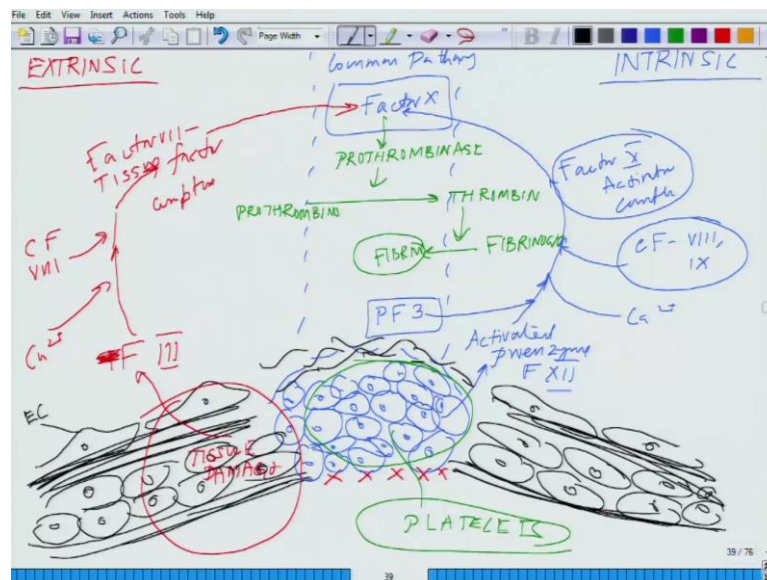 File Edit View Insert Actions Tools Help
Page Width
EXTRINSIC
Common Pathway
INTRINSIC
Factor X
Factor VII-
Tissue factor
complex
PROTHROMBINASE
PROTHROMBIN
THROMBIN
FIBRIN
FIBRINOGEN
Factor X
Activator
complex
CF
VIII
CF-VIII,
IX
Ca
Ca
PF 3
F III
Activated
proenzyme
F XII
EC
TISSUE
DAMAGE
PLATELETS
39 / 76
39